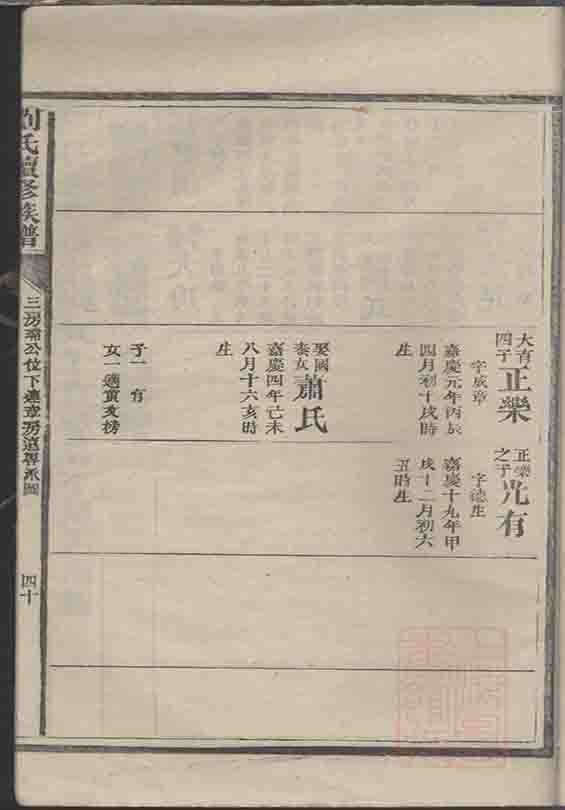 大有
四子
正榮
字成章
嘉慶元年丙辰
四月初十戌時
生
娶國
泰女
蕭氏
嘉慶四年己未
八月十六亥時
生
子一 有
女一適黃友榜
正榮
之子
光有
字德生
嘉慶十九年甲
戌十二月初六
丑時生
劉氏續修族譜
三房 公位下連章房遠 系圖
四十